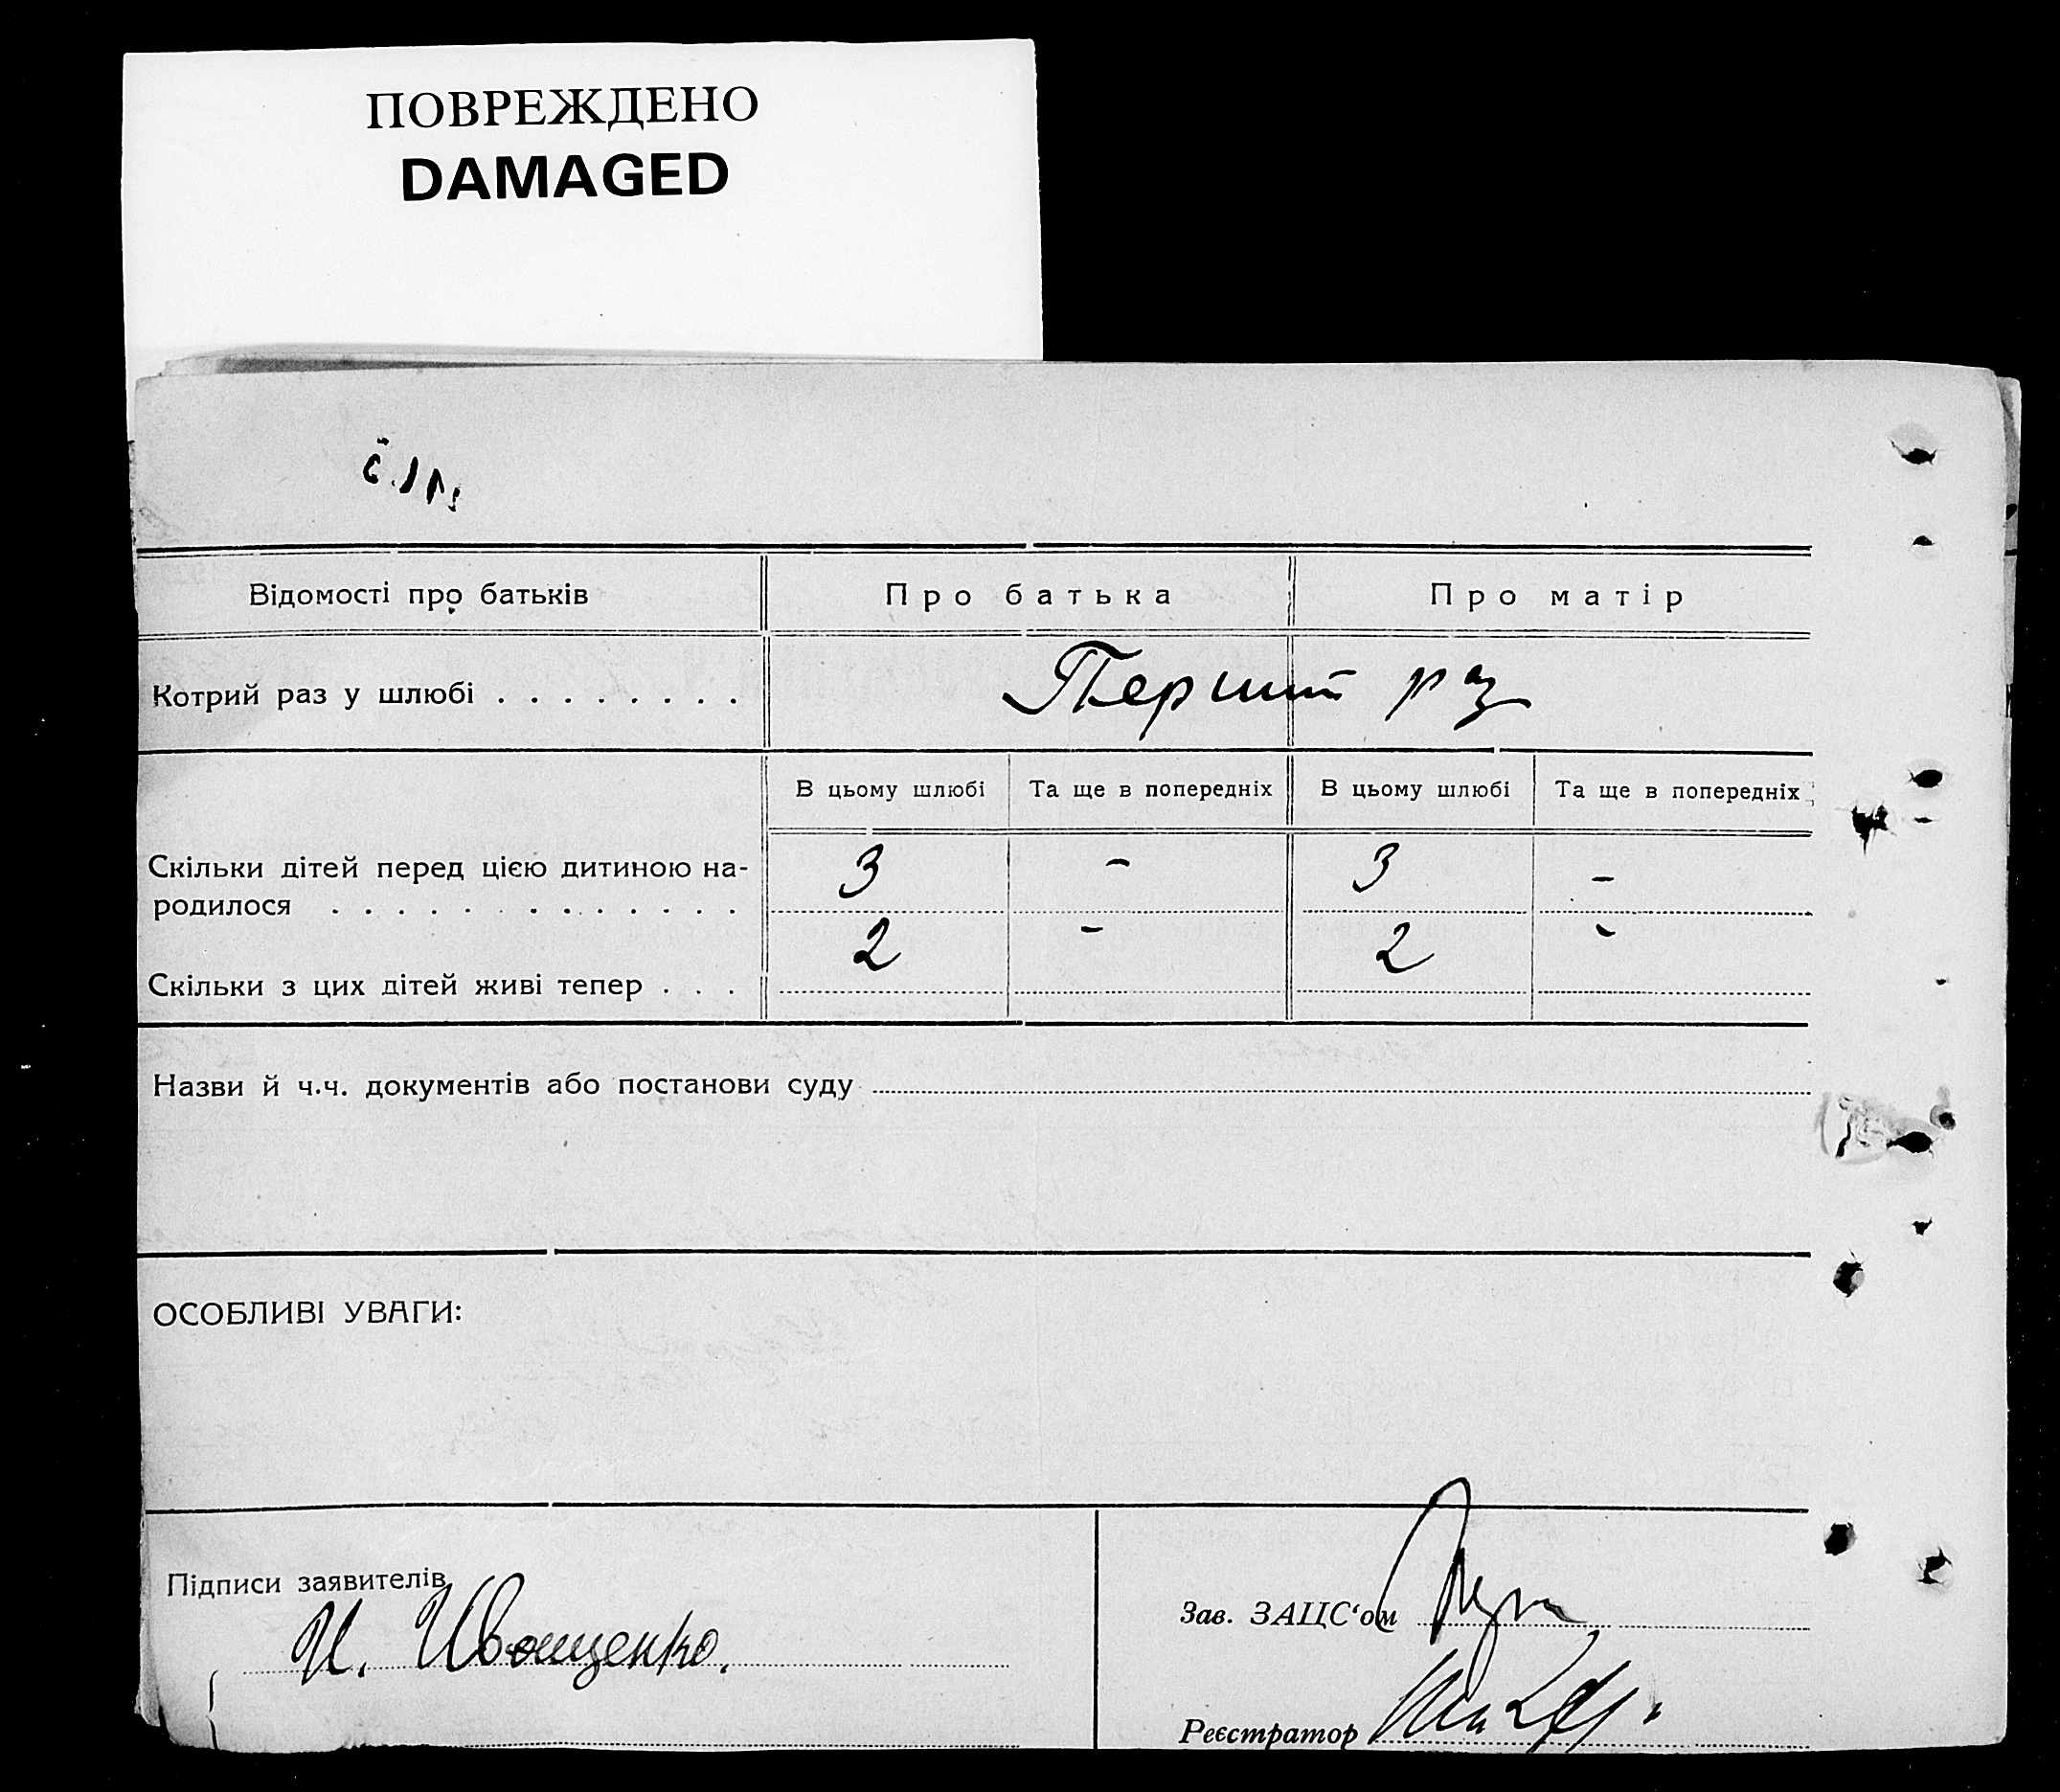 ПОВРЕЖДЕНО
DAMAGED
Відомості про батьків
Про батька
Про матір
Котрий раз у шлюбі . . . . . . . .
Перший раз
В цьому шлюбі
Та ще в попередніх
В цьому шлюбі
Та ще в попередніх
Скільки дітей перед цією дитиною на-
родилося . . . . . . . . . . . . .
3
-
3
-
Скільки з цих дітей живі тепер . . .
2
-
2
-
Назви й ч.ч. документів або постанови суду
ОСОБЛИВІ УВАГИ:
Підписи заявителів
И. Иващенко.
Зав. ЗАЦС‘ом
Реєстратор